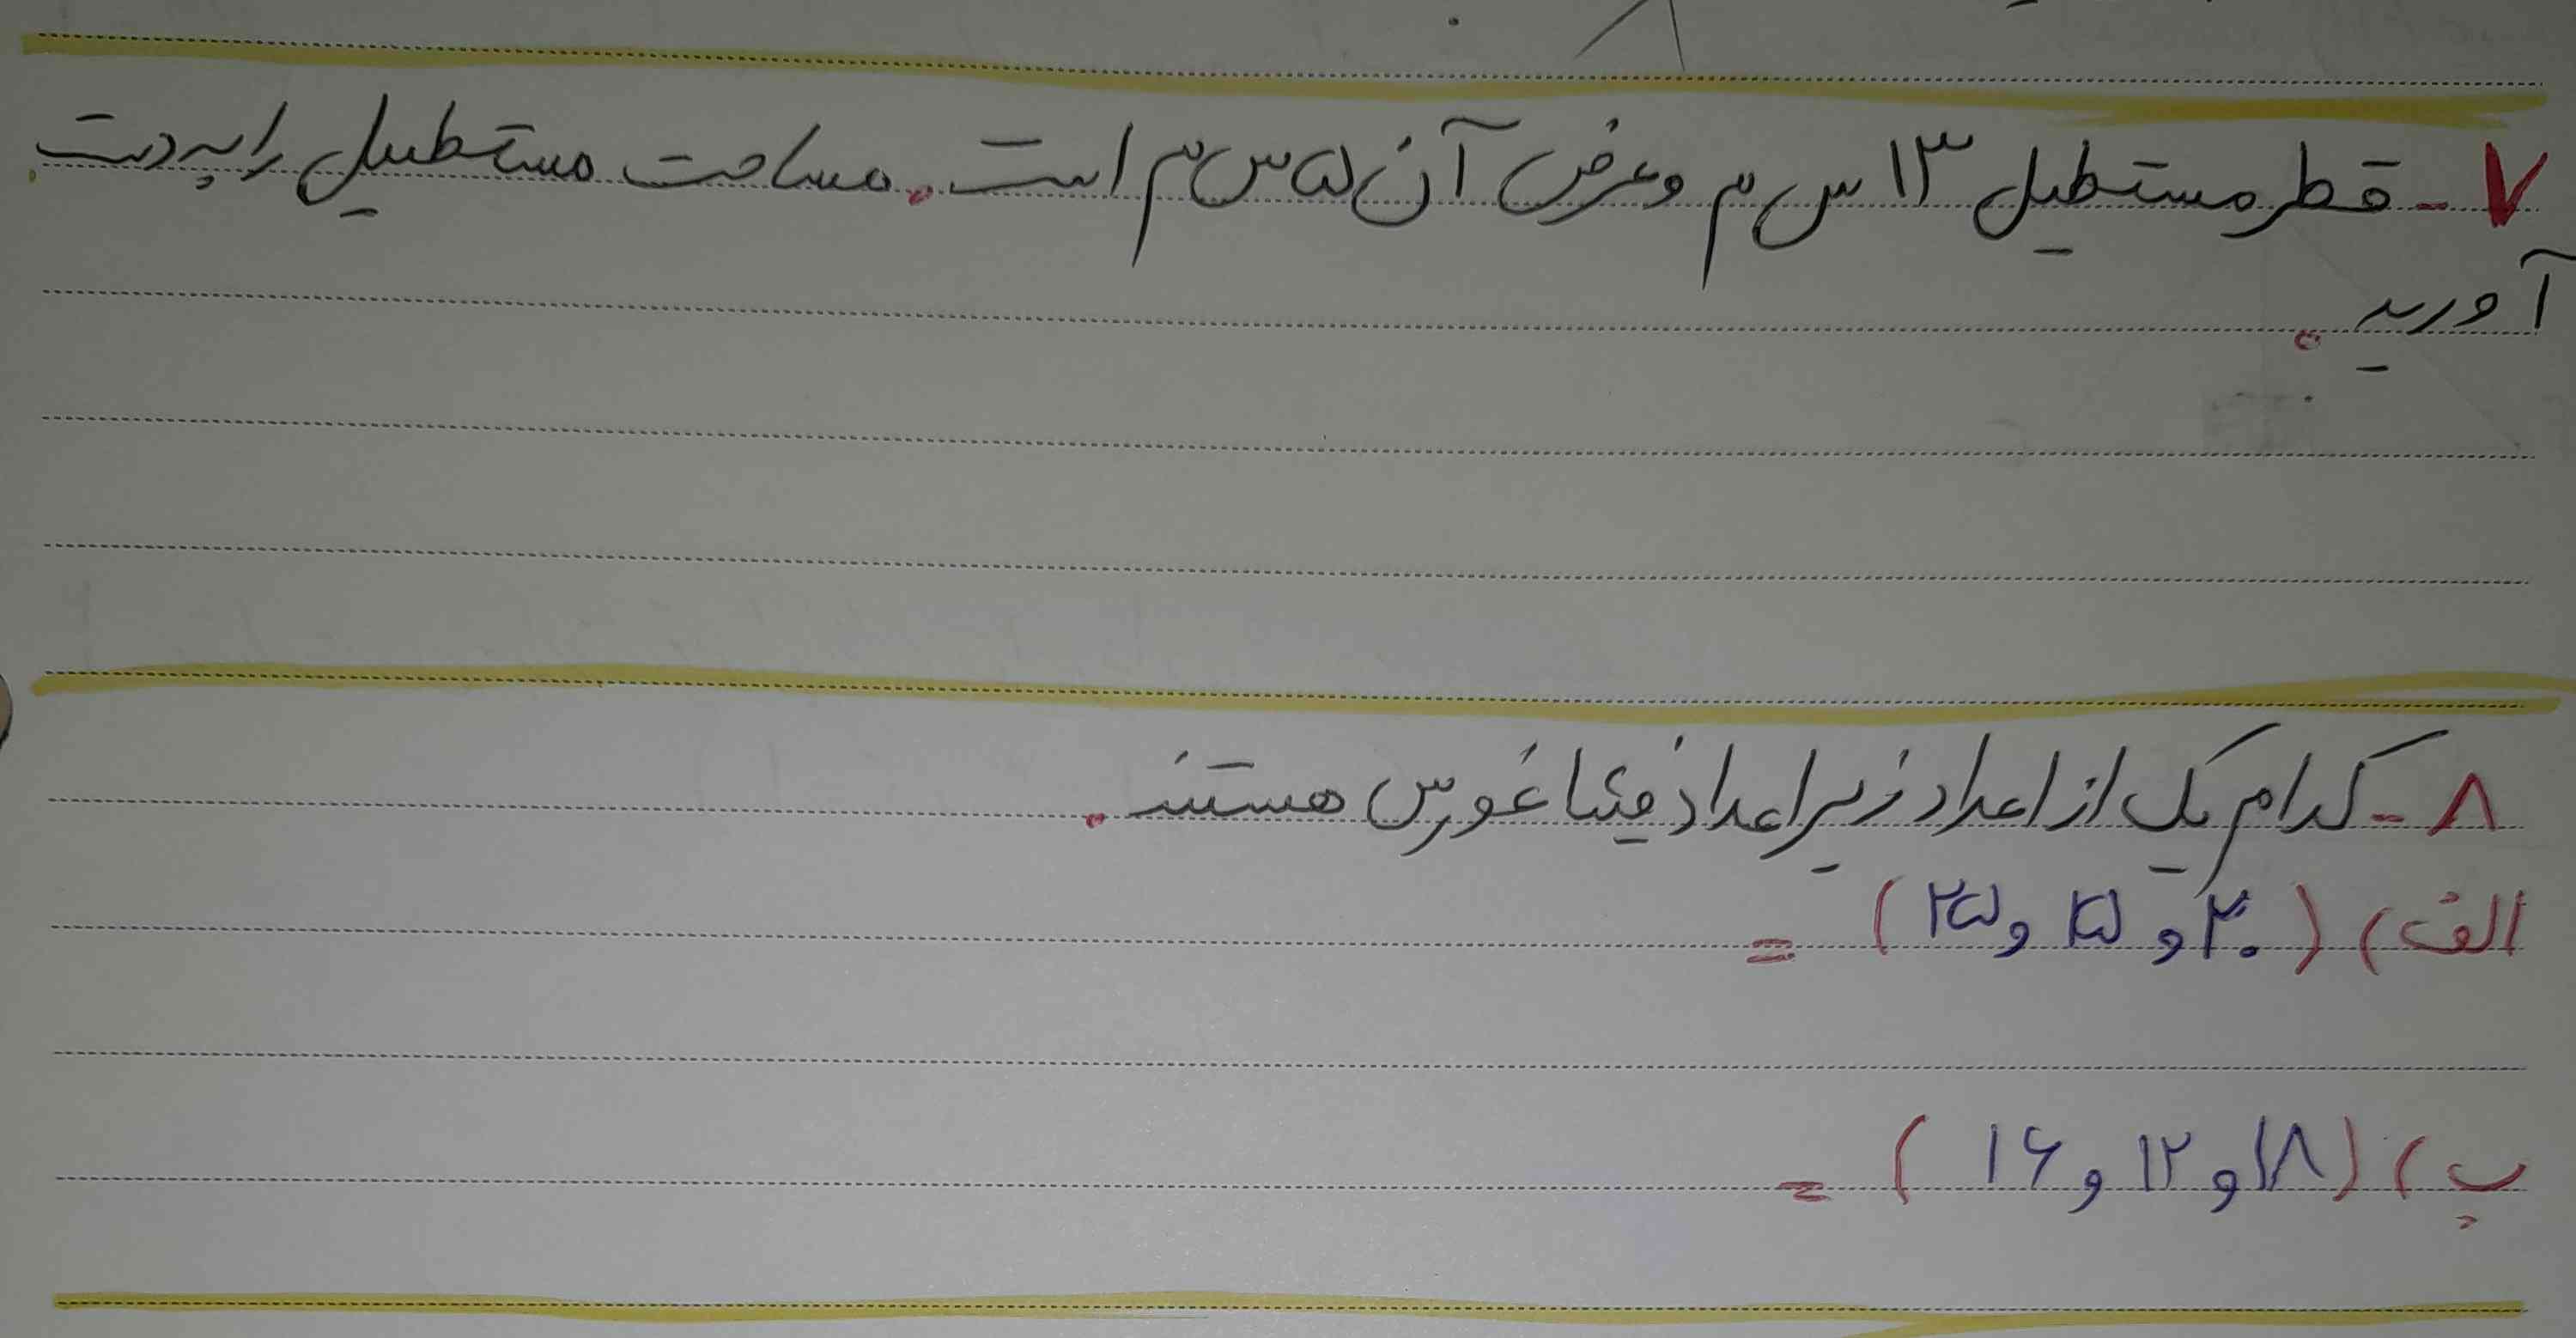 ۷- قطر مستطیل ۱۳ س م و عرض آن ۵ س م است. مساحت مستطیل را به دست
آورید.
۸- کدام یک از اعداد زیر اعداد فیثاغورس هستند.
الف) (۲۰ و ۱۵ و ۲۵) =
ب) (۱۸ و ۱۲ و ۱۶) =